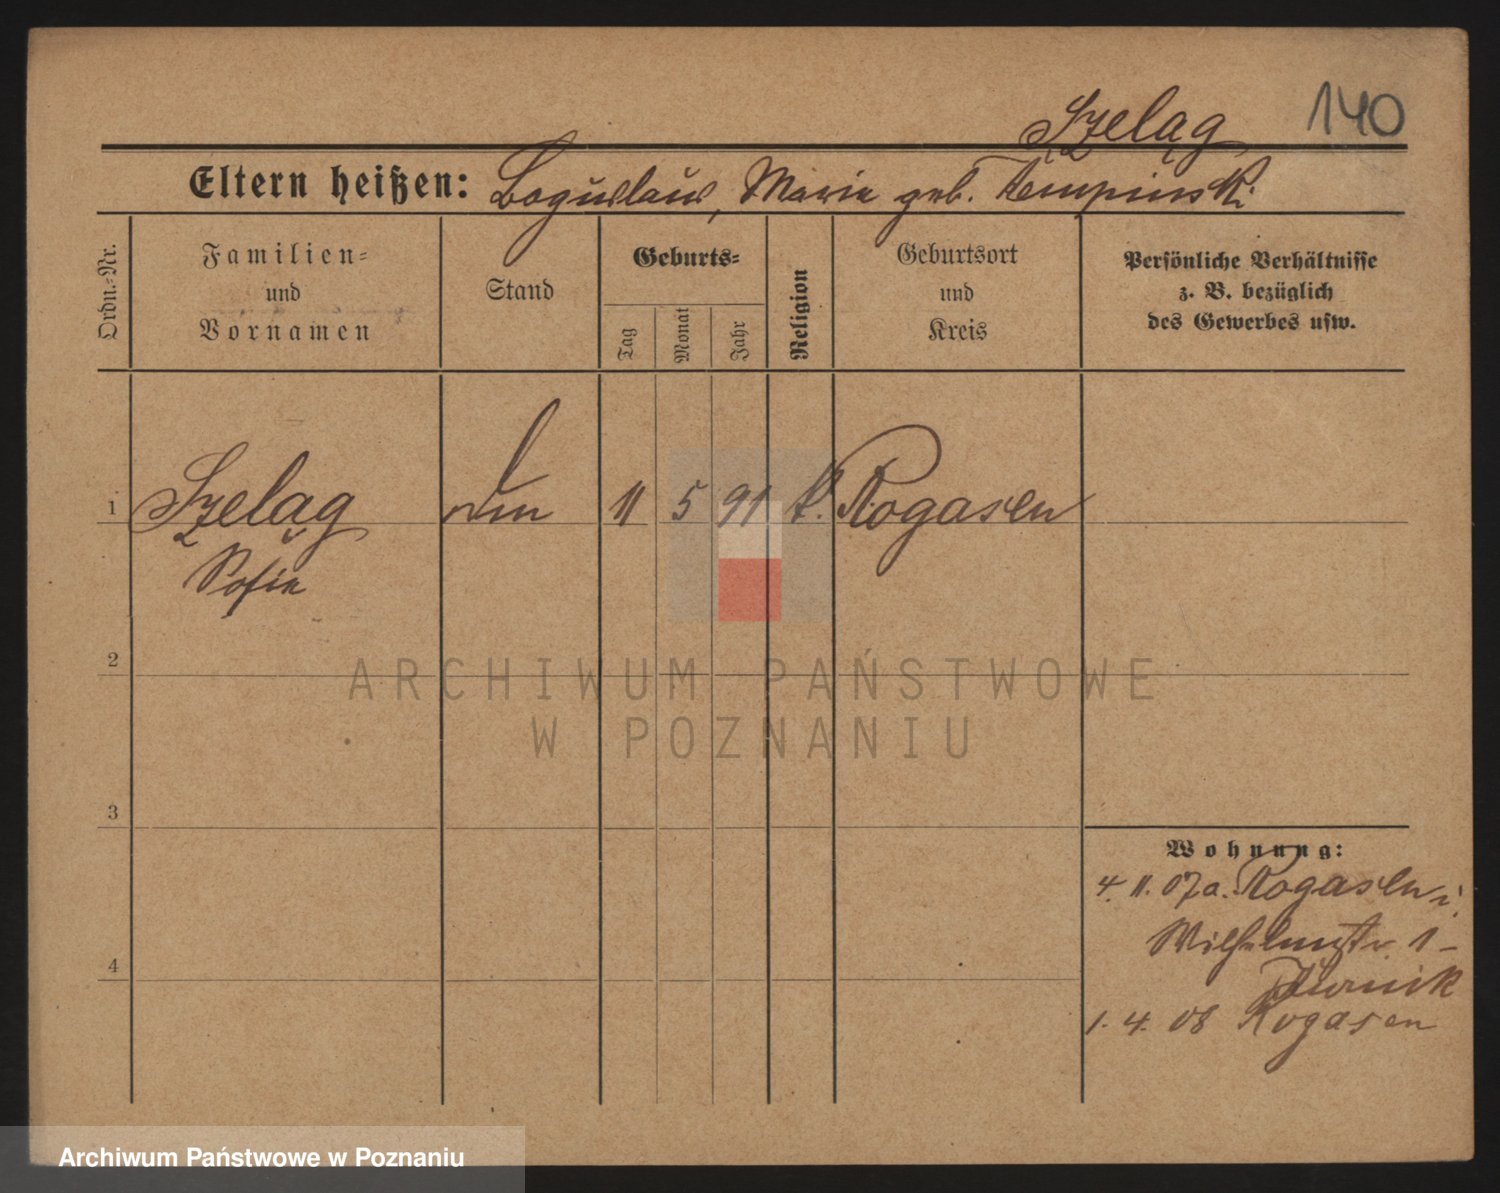 140
Szeląg
Eltern heißen: Boguslaus, Marie geb. Kempinski
Ordn.-Nr.
Familien-
und
Vornamen
Stand
Geburts-
Tag
Monat
Jahr
Religion
Geburtsort
und
Kreis
Persönliche Verhältnisse
z. B. bezüglich
des Gewerbes usw.
1 Szeląg 11 5 91 k. Rogasen
Sofie
2
ARCHIWUM PAŃSTWOWE
W POZNANIU
3
Wohnung:
4. 11. 07 a. Rogasen i.
Wilhelmstr. 1-
4
1. 4. 08 Rogasen
Archiwum Państwowe w Poznaniu